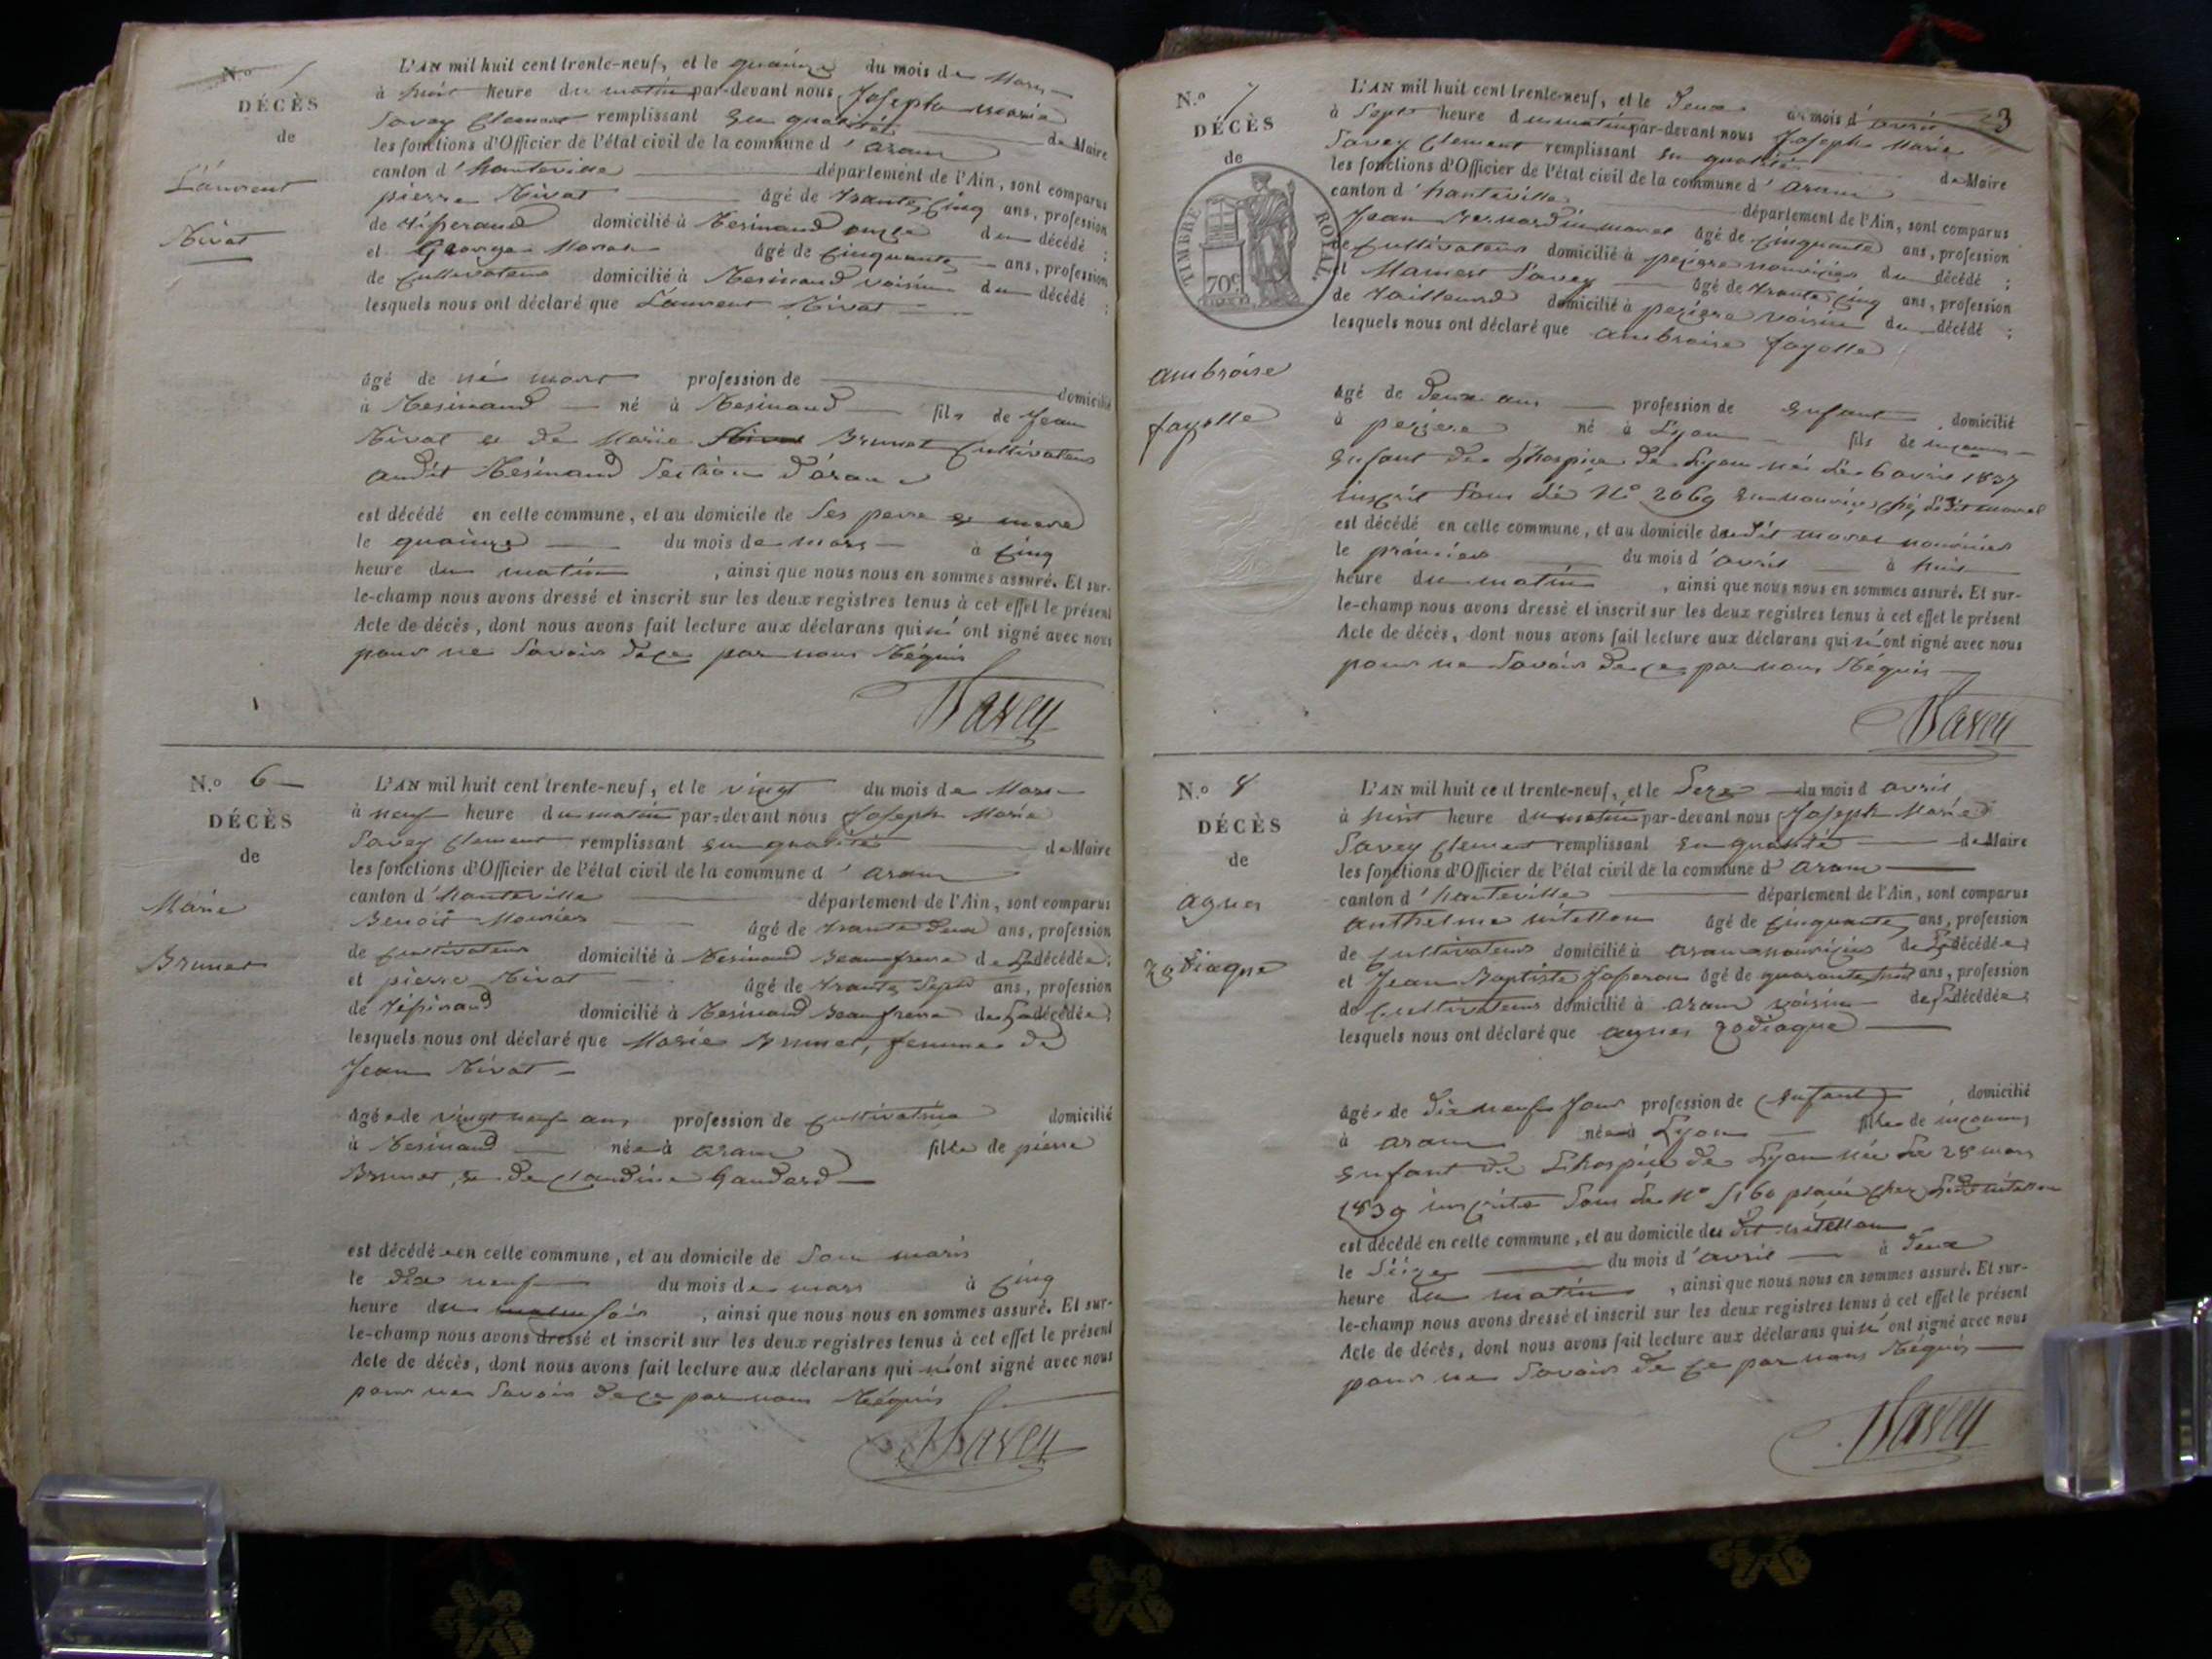 N.o 5
DÉCÈS
de
Laurent
Nivat
L'AN mil huit cent trente-neuf, et le quainze du mois de Mars
à huit heure du matin par-devant nous Joseph Marie
Savey Clement remplissant en qualité de Maire
les fonctions d'Officier de l'état civil de la commune d'aran
canton d'hauteville département de l'Ain, sont comparus
pierre Nivat âgé de trante cinq ans, profession
de domicilié à Resinand oncle du décédé ;
et George Moran âgé de cinquante ans, profession
de Cultivateur domicilié à Resinand voisin du décédé ;
lesquels nous ont déclaré que Laurent Nivat
âgé de né mort profession de domicilié
à Resinand né à Resinand fils de Jean
Nivat et de Marie Brunet Cultivateur
audit Resinand Section d'aran
est décédé en cette commune, et au domicile de Ses pere et mere
le quainze du mois de mars à Cinq
heure du matin , ainsi que nous nous en sommes assuré. Et sur-
le-champ nous avons dressé et inscrit sur les deux registres tenus à cet effet le présent
Acte de décès, dont nous avons fait lecture aux déclarans qui n'ont signé avec nous
pour ne Savoir de ce par nous Réquis
Savey
N.o 6
DÉCÈS
de
Marie
Brunet
L'AN mil huit cent trente-neuf, et le vingt du mois de Mars
à neuf heure du matin par-devant nous Joseph Marie
Savey Clement remplissant en qualité de Maire
les fonctions d'Officier de l'état civil de la commune d'aran
canton d'hauteville département de l'Ain, sont comparus
Benoit Mounier âgé de trante deux ans, profession
de Cultivateur domicilié à Resinand Beaufrere de La décédée ;
et pierre Nivat âgé de trante Sept ans, profession
de domicilié à Resinand Beaufrere de La décédée ;
lesquels nous ont déclaré que Marie Brunet, femme de
Jean Nivat
âgée de vingt neuf ans profession de Cultivatrice domicilié
à Resinand née à aran fille de pierre
Brunet et de Claudine Gaudard
est décédée en cette commune, et au domicile de Son maris
le dix neuf du mois de mars à Cinq
heure du soir , ainsi que nous nous en sommes assuré. Et sur-
le-champ nous avons dressé et inscrit sur les deux registres tenus à cet effet le présent
Acte de décès, dont nous avons fait lecture aux déclarans qui n'ont signé avec nous
pour ne Savoir de ce par nous Réquis
Savey
23
N.o 7
DÉCÈS
de
TIMBRE ROYAL.
70c
ambroise
fayolle
L'AN mil huit cent trente-neuf, et le Deux du mois d'avril
à Sept heure du matin par-devant nous Joseph Marie
Savey Clement remplissant en qualité de Maire
les fonctions d'Officier de l'état civil de la commune d'aran
canton d'hauteville département de l'Ain, sont comparus
Jean Bernardin morel âgé de Cinquante ans, profession
de Cultivateur domicilié à nouricier du décédé ;
et Mamert Savey âgé de trante cinq ans, profession
de tailleurd domicilié à voisin du décédé ;
lesquels nous ont déclaré que ambroise fayolle
âgé de Deux ans profession de Enfant domicilié
à né à Lyon fils de inconnu
Enfant de L'hospice de Lyon né Le 6 avril 1837
inscrit Sous Le N° 2069 En nourice chez Ledit morel
est décédé en cette commune, et au domicile dudit morel nouricier
le prémier du mois d'avril à huit
heure du matin , ainsi que nous nous en sommes assuré. Et sur-
le-champ nous avons dressé et inscrit sur les deux registres tenus à cet effet le présent
Acte de décès, dont nous avons fait lecture aux déclarans qui n'ont signé avec nous
pour ne Savoir de ce par nous Réquis
Savey
N.o 8
DÉCÈS
de
agnes
zodiaque
L'AN mil huit cent trente-neuf, et le Seze du mois d avril
à huit heure du matin par-devant nous Joseph Marie
Savey Clement remplissant En qualité de Maire
les fonctions d'Officier de l'état civil de la commune d'aran
canton d'hauteville département de l'Ain, sont comparus
anthelme âgé de Cinquante ans, profession
de Cultivateur domicilié à aran nouricier de La décédée ;
et Jean Baptiste âgé de quarante huit ans, profession
de Cultivateur domicilié à aran voisin de La décédée ;
lesquels nous ont déclaré que agnes zodiaque
âgée de dix neuf jour profession de Enfant domicilié
à aran née à Lyon fille de inconnu
Enfant de L'hospice de Lyon née Le 28 mars
1839 inscrite Sous Le N° 5160 placée chez Ledit
est décédé en cette commune, et au domicile du dit
le Séize du mois d'avril à Deux
heure du matin , ainsi que nous nous en sommes assuré. Et sur-
le-champ nous avons dressé et inscrit sur les deux registres tenus à cet effet le présent
Acte de décès, dont nous avons fait lecture aux déclarans qui n'ont signé avec nous
pour ne Savoir de ce par nous Réquis
Savey